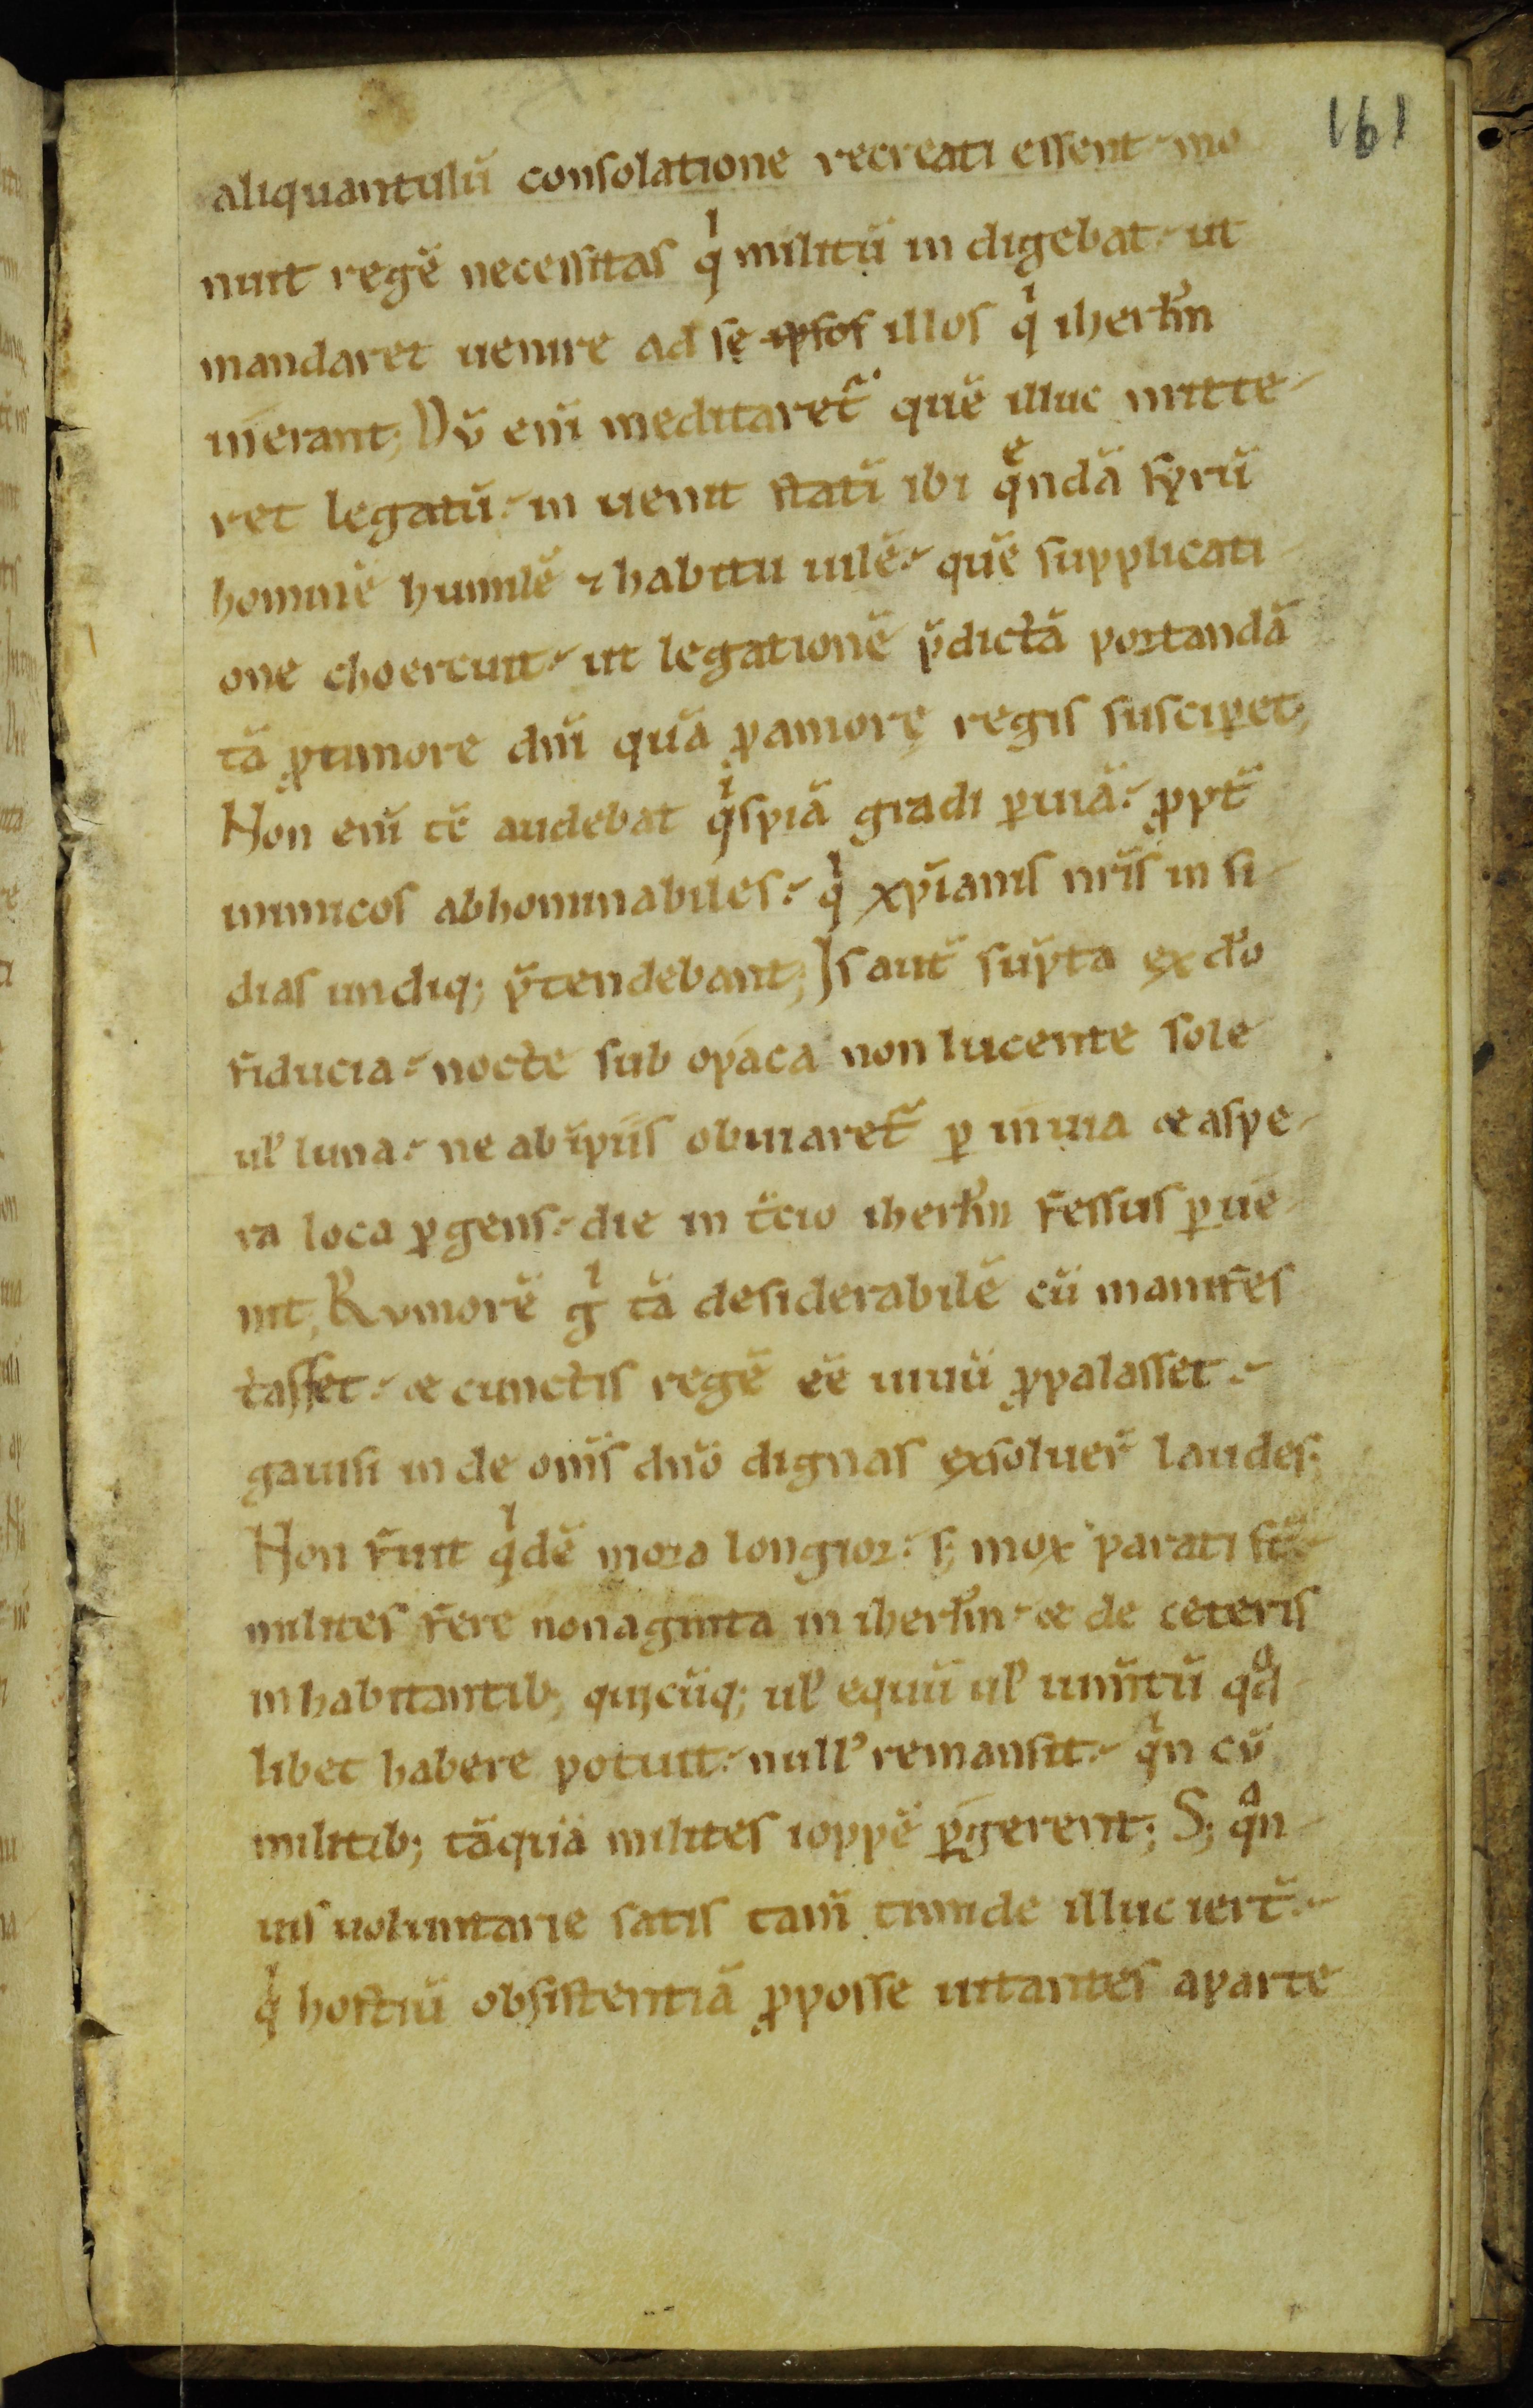 161
aliquantulū consolatione recreati essent mo
nuit regē necessitas qͥ militū indigebat ut
mandaret uenire ad sę ipsos illos qͥ iherl̄m
uierant; Dū enī meditaret᷑ quē illuc mitte
ret legatū in uenit statī ibi qͤndā syrū
hominē humilē ⁊ habitu uilē quē supplicati
one choercuit ut legationē p̄dictā portandā
tā ꝓ timore dn̄i quā ꝓ amorę regis susciperet;
Non enī tc̄ audebat qͥspiā gradi ꝑ uiā ꝓpt̄
inimicos abhominabiles qͥ xp̄ianis nr̄is in si
dias undiq; p̄tendebant; Is aut̄ sūpta ex dō
fiducia nocte sub opaca non lucente sole
ul̓ luna ne ab īpiis obuiaret᷑ ꝑ inuia & aspe
ra loca ꝑgens die in t̄cio iherl̄m fessus ꝑ ue
nit; Rumorē gͥ tā desiderabilē cū manifes
tasset & cunctis regē eē uiuū ꝓpalasset
gauisi inde om̄s dn̄o dignas exsoluer̄ laudes;
Non fuit qͥdē mora longior s; mox parati st̄
milites fere nonaginta in iherl̄m & de ceteris
inhabitantib; quicūq; ul̓ equū ul̓ ium̄tū qͣd
libet habere potuit null᾽ remansit qͥn cū
militib; tāquā milites ioppē ꝑgerent; S; qͣn
uis uoluntarie satis tam̄ timide illuc iert̄
qͥ hostiū obsistentiā ꝓ posse uitantes a parte